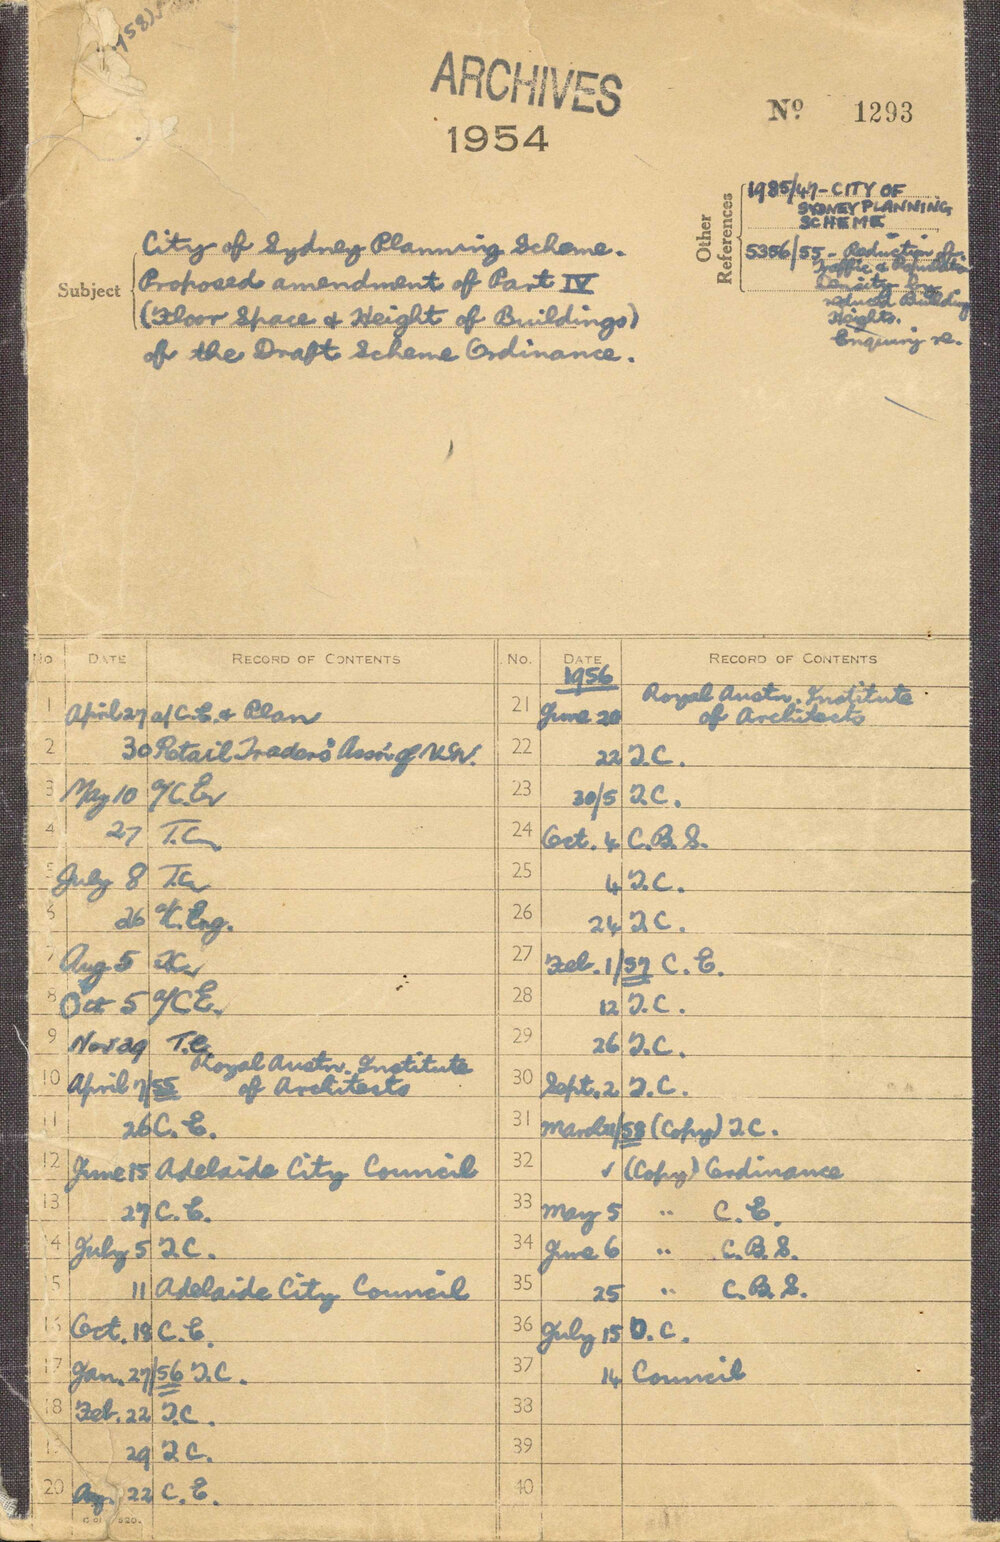 ARCHIVES
1954
Nº 1293
Other References
1985/47-CITY OF
SYDNEY PLANNING
SCHEME
5356/55 - Reduction of
Traffic & Population
Density by
reduced Building
Heights.
Enquiry re.
Subject
City of Sydney Planning Scheme.
Proposed amendment of Part IV
(Floor Space & Height of Buildings)
of the Draft Scheme Ordinance.
No DATE RECORD OF CONTENTS
1 April 27 a/C.E. & Plan
2 30 Retail Traders' Assn. of N.S.W.
3 May 10 a/C.E.
4 27 T.C.
5 July 8 T.C.
6 26 a/C. Eng.
7 Aug 5 T.C.
8 Oct 5 a/C.E.
9 Nov 29 T.C.
10 April 7/55 Royal Austn. Institute
of Architects
11 26 C. E.
12 June 15 Adelaide City Council
13 27 C. E.
14 July 5 T.C.
15 11 Adelaide City Council
16 Oct. 18 C. E.
17 Jan. 27/56 T.C.
18 Feb. 22 T.C.
19 29 T.C.
20 22 C. E.
No. DATE RECORD OF CONTENTS
1956
21 June 20 Royal Austn. Institute
of Architects
22 22 T.C.
23 30/5 T.C.
24 Oct. 4 C.B.S.
25 4 T.C.
26 24 T.C.
27 Feb. 1/57 C. E.
28 12 T.C.
29 26 T.C.
30 Sept. 2 T.C.
31 March /58 (Copy) T.C.
32 ✓ (Copy) Ordinance
33 May 5 " C. E.
34 June 6 " C.B.S.
35 25 " C.B.S.
36 July 15 D.C.
37 14 Council
38
39
40